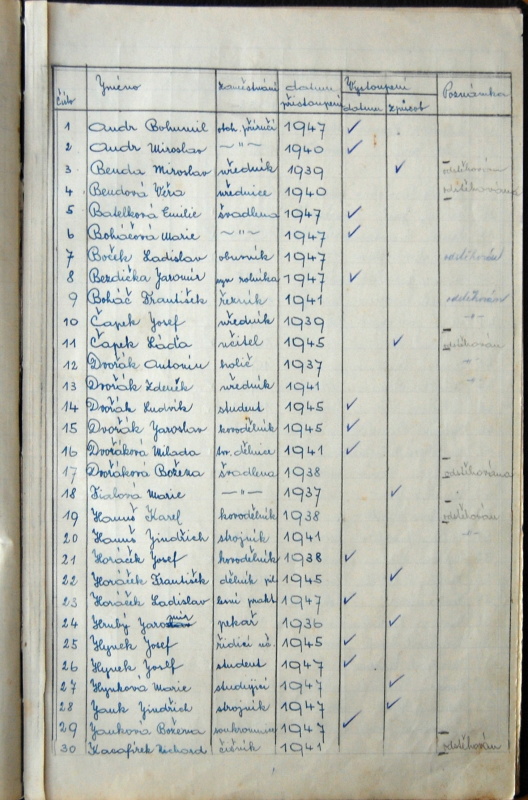 číslo Jméno zaměstnání datum přistoupení Vystoupení datum způsob Poznámka
1 Andr Bohumil obch. příručí 1947 ✓
2 Andr Miroslav —"— 1940 ✓
3 Benda Miroslav úředník 1939 ✓ odstěhován
4 Bendová Věra úřednice 1940 odstěhována
5 Batelková Emilie švadlena 1947 ✓
6 Boháčová Marie —"— 1947 ✓
7 Boček Ladislav obuvník 1947 odstěhován
8 Bezdička Jaromír syn rolníka 1947 ✓
9 Boháč František řezník 1941 odstěhován
10 Čapek Josef úředník 1939 -"-
11 Čapek Láďa učitel 1945 ✓ odstěhován
12 Dvořák Antonín holič 1937
13 Dvořák Zdeněk úředník 1941
14 Dvořák Ludvík student 1945 ✓
15 Dvořák Jaroslav kovodělník 1945 ✓
16 Dvořáková Milada dělnice 1941 ✓
17 Dvořáková Božena švadlena 1938 odstěhována
18 Fialová Marie —"— 1937 ✓
19 Hanuš Karel kovodělník 1938 odstěhován
20 Hanuš Jindřich strojník 1941 -"-
21 Horáček Josef kovodělník 1938 ✓
22 Horáček František dělník pil. 1945 ✓
23 Horáček Ladislav lesní prakt. 1947 ✓
24 Hrubý Jaromír pekař 1936 ✓
25 Hynek Josef řídící uč. 1945 ✓
26 Hynek Josef student 1947 ✓
27 Hynková Marie studující 1947 ✓
28 Jank Jindřich strojník 1947 ✓
29 Janková Božena soukromnice 1947 ✓
30 Kacafírek Richard číšník 1941 odstěhován